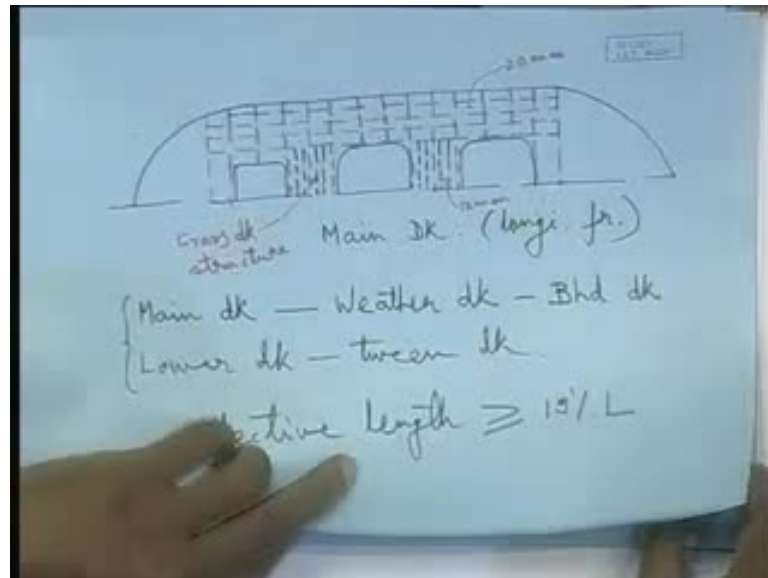 20 mm
12 mm
Cross dk
structure
Main Dk. (longi. fr.)
Main dk — Weather dk - Bhd dk
Lower dk - tween dk
ctive length ≥ 15% L